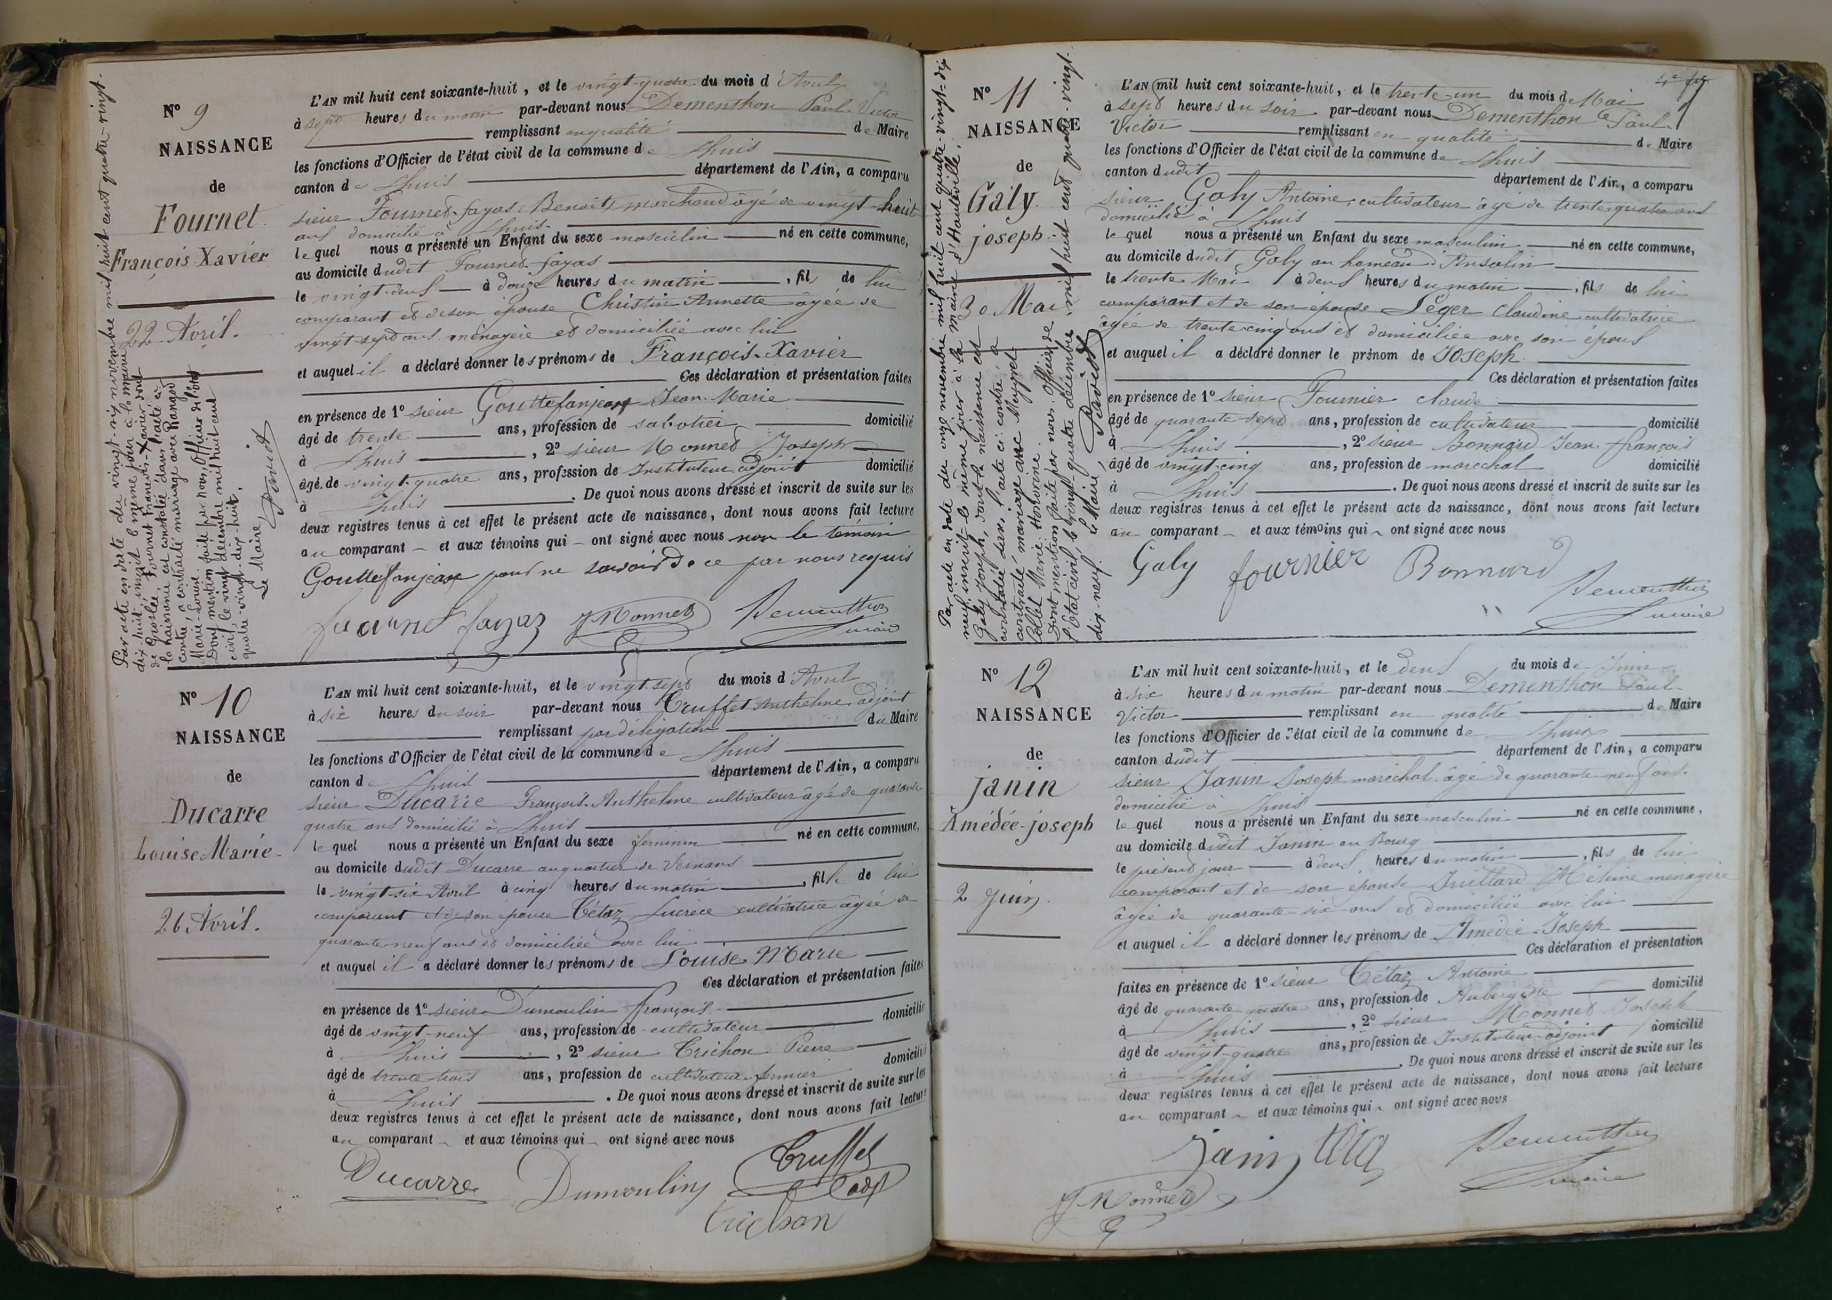 N° 9
NAISSANCE
de
Fournet
François Xavier
22 Avril.
Par acte en date du vingt-six novembre mil huit cent quatre-vingt-
dix huit, inscrit le même jour à la mairie
de Groslée, Fournet François-Xavier dont
la naissance est constatée dans l'acte ci-
contre, a contracté mariage avec
Marie-Louise.
Dont mention faite par nous, Officier de l'état
civil, le vingt décembre mil huit cent
quatre-vingt-dix-huit.
Le Maire,
David
L'AN mil huit cent soixante-huit, et le vingt-quatre du mois d'Avril
à sept heures du matin par-devant nous Dementhon Paul Victor
remplissant en qualité de Maire
les fonctions d'Officier de l'état civil de la commune de Lhuis
canton de Lhuis département de l'Ain, a comparu
sieur Fournet-fayas Benoit marchand âgé de vingt-huit
ans domicilié à Lhuis
lequel nous a présenté un Enfant du sexe masculin né en cette commune,
au domicile dudit Fournet-fayas
le vingt-deux à douze heures du matin, fils de lui
comparant et de son épouse Christin Annette agée de
vingt sept ans ménagère et domiciliée avec lui
et auquel il a déclaré donner les prénoms de François-Xavier
Ces déclaration et présentation faites
en présence de 1° sieur Gouttefanjean Jean-Marie
âgé de trente ans, profession de sabotier domicilié
à Lhuis, 2° sieur Monnet Joseph
âgé de vingt-quatre ans, profession de Instituteur adjoint domicilié
à Lhuis. De quoi nous avons dressé et inscrit de suite sur les
deux registres tenus à cet effet le présent acte de naissance, dont nous avons fait lecture
au comparant et aux témoins qui ont signé avec nous non le témoin
Gouttefanjean pour ne savoir de ce par nous requis
fournet fayas J Monnet Dementhon
maire
N° 10
NAISSANCE
de
Ducarre
Louise Marie
26 Avril.
L'AN mil huit cent soixante-huit, et le vingt sept du mois d'Avril
à six heures du soir par-devant nous Truffet Anthelme adjoint
remplissant par délégation du Maire
les fonctions d'Officier de l'état civil de la commune de Lhuis
canton de Lhuis département de l'Ain, a comparu
sieur Ducarre François-Anthelme cultivateur âgé de quarante
quatre ans domicilié à Lhuis
lequel nous a présenté un Enfant du sexe féminin né en cette commune,
au domicile dudit Ducarre au quartier de
le vingt-six Avril à cinq heures du matin, fille de lui
comparant et de son épouse Tétaz Lucrèce cultivatrice âgée de
quarante-neuf ans et domiciliée avec lui
et auquel il a déclaré donner les prénoms de Louise Marie
Ces déclaration et présentation faites
en présence de 1° sieur Dumoulin françois
âgé de vingt-neuf ans, profession de cultivateur domicilié
à Lhuis, 2° sieur Trichon Pierre
âgé de trente trois ans, profession de cultivateur-fermier domicilié
à Lhuis. De quoi nous avons dressé et inscrit de suite sur les
deux registres tenus à cet effet le présent acte de naissance, dont nous avons fait lecture
au comparant et aux témoins qui ont signé avec nous
Ducarre Dumoulin Truffet
adjt
Trichon
N° 11
NAISSANCE
de
Galy
joseph
30 Mai
Par acte en date du onze novembre mil huit cent quatre-vingt-dix
neuf, inscrit le même jour à la mairie d'Hauteville,
Galy Joseph, dont la naissance est
constatée dans l'acte ci-contre, a
contracté mariage avec Meygret
Collet Marie Honorine.
Dont mention faite par nous Officier de
l'état civil, le vingt quatre décembre mil huit cent quatre-vingt-
dix-neuf. Le Maire, David
L'AN mil huit cent soixante-huit, et le trente-un du mois de Mai
à sept heures du soir par-devant nous Dementhon Paul
Victor remplissant en qualité de Maire
les fonctions d'Officier de l'état civil de la commune de Lhuis
canton dudit département de l'Ain, a comparu
sieur Galy Antoine, cultivateur âgé de trente-quatre ans
domicilié à Lhuis
lequel nous a présenté un Enfant du sexe masculin né en cette commune,
au domicile dudit Galy au hameau d'Ansolin
le trente Mai à deux heures du matin, fils de lui
comparant et de son épouse Léger Claudine cultivatrice
âgée de trente-cinq ans et domiciliée avec son époux
et auquel il a déclaré donner le prénom de Joseph
Ces déclaration et présentation faites
en présence de 1° sieur Fournier claude
âgé de quarante sept ans, profession de cultivateur domicilié
à Lhuis, 2° sieur Bonnard Jean-françois
âgé de vingt-cinq ans, profession de marechal domicilié
à Lhuis. De quoi nous avons dressé et inscrit de suite sur les
deux registres tenus à cet effet le présent acte de naissance, dont nous avons fait lecture
au comparant et aux témoins qui ont signé avec nous
Galy fournier Bonnard
Dementhon
maire
N° 12
NAISSANCE
de
janin
Amédée-joseph
2 Juin
L'AN mil huit cent soixante-huit, et le deux du mois de Juin
à six heures du matin par-devant nous Dementhon Paul
Victor remplissant en qualité de Maire
les fonctions d'Officier de l'état civil de la commune de Lhuis
canton dudit département de l'Ain, a comparu
sieur Janin Joseph maréchal âgé de quarante-neuf ans
domicilié à Lhuis
lequel nous a présenté un Enfant du sexe masculin né en cette commune,
au domicile dudit Janin au Bourg
le présent jour à deux heures du matin, fils de lui
comparant et de son épouse Juillard Mélanie ménagère
âgée de quarante-six ans et domiciliée avec lui
et auquel il a déclaré donner les prénoms de Amédée-Joseph
Ces déclaration et présentation
faites en présence de 1° sieur Tétaz Antoine
âgé de quarante quatre ans, profession de Aubergiste domicilié
à Lhuis, 2° sieur Monnet Joseph
âgé de vingt-quatre ans, profession de Instituteur-adjoint domicilié
à Lhuis. De quoi nous avons dressé et inscrit de suite sur les
deux registres tenus à cet effet le présent acte de naissance, dont nous avons fait lecture
au comparant et aux témoins qui ont signé avec nous
Janin tétaz Dementhon
maire
J Monnet